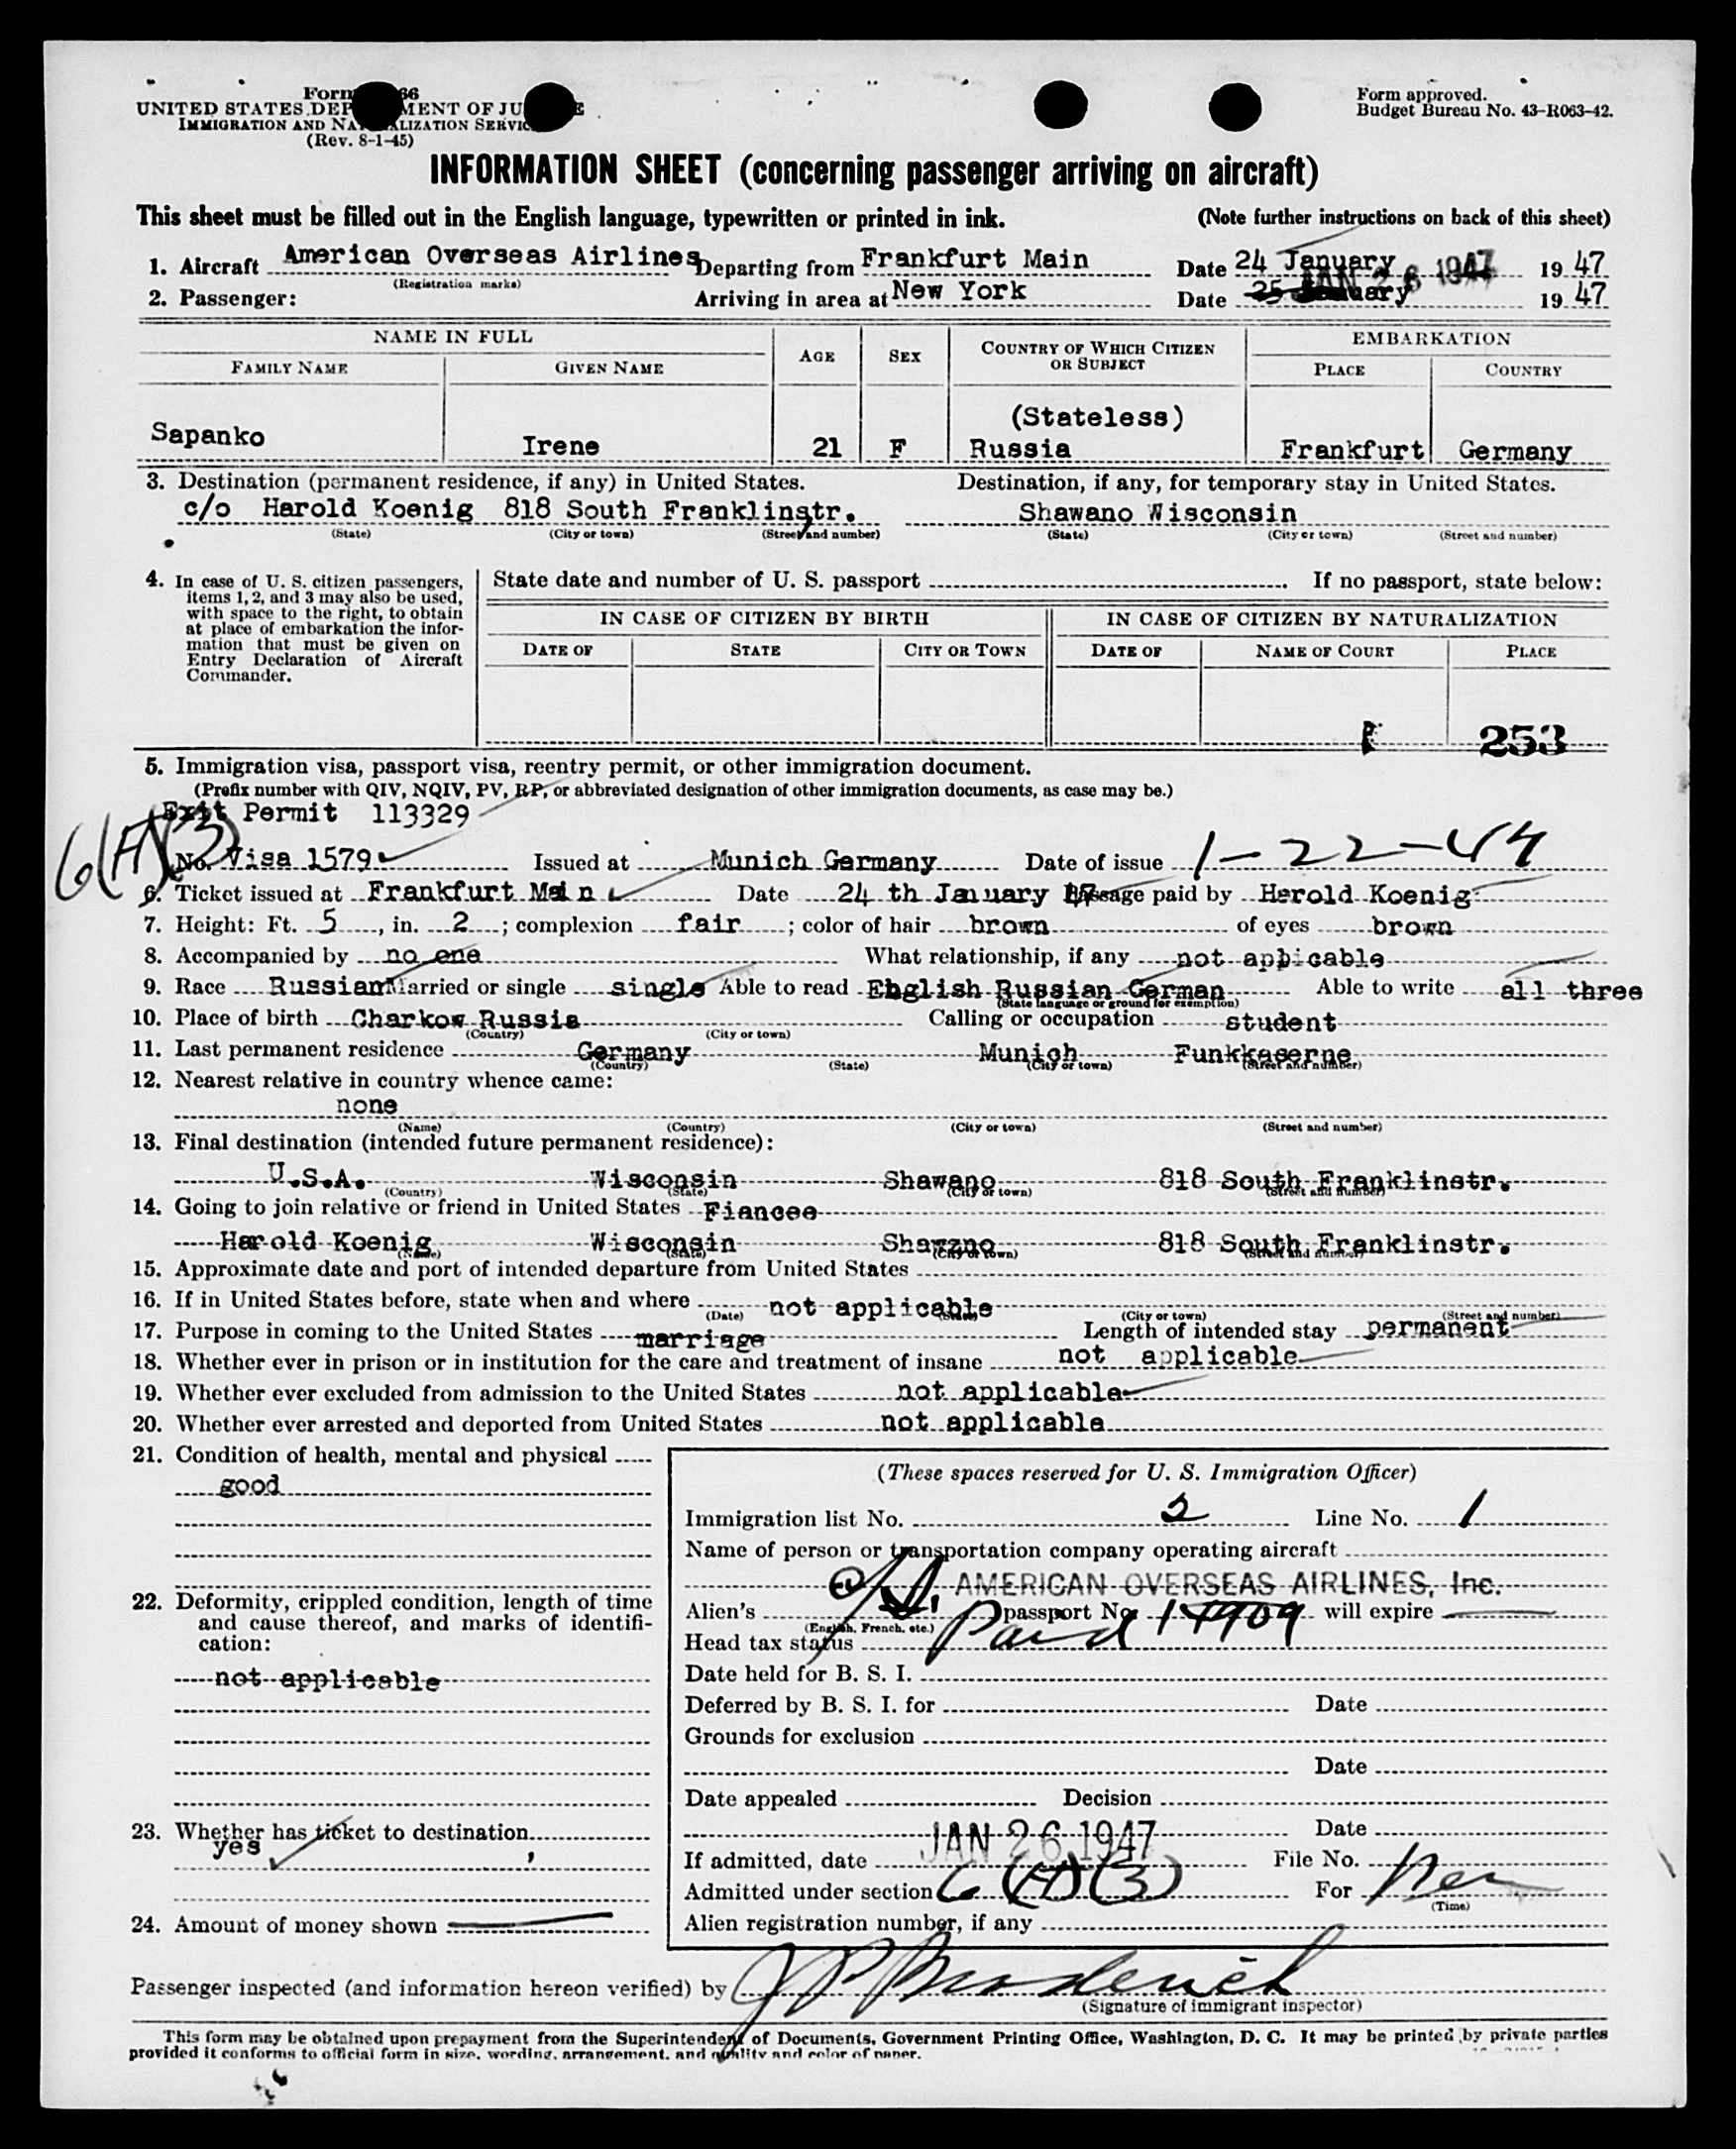 Form 66
UNITED STATES DEPARTMENT OF JUSTICE
IMMIGRATION AND NATURALIZATION SERVICE
(Rev. 8-1-45)
Form approved.
Budget Bureau No. 43-R063-42.
INFORMATION SHEET (concerning passenger arriving on aircraft)
This sheet must be filled out in the English language, typewritten or printed in ink. (Note further instructions on back of this sheet)
1. Aircraft American Overseas Airlines Departing from Frankfurt Main Date 24 January 19 47
(Registration marks)
JAN 26 1947
2. Passenger: Arriving in area at New York Date 25 January 19 47
NAME IN FULL AGE SEX COUNTRY OF WHICH CITIZEN OR SUBJECT EMBARKATION
FAMILY NAME GIVEN NAME PLACE COUNTRY
(Stateless)
Sapanko Irene 21 F Russia Frankfurt Germany
3. Destination (permanent residence, if any) in United States. Destination, if any, for temporary stay in United States.
c/o Harold Koenig 818 South Franklinstr. Shawano Wisconsin
(State) (City or town) (Street and number) (State) (City or town) (Street and number)
4. In case of U. S. citizen passengers,
items 1, 2, and 3 may also be used,
with space to the right, to obtain
at place of embarkation the infor-
mation that must be given on
Entry Declaration of Aircraft
Commander.
State date and number of U. S. passport . If no passport, state below:
IN CASE OF CITIZEN BY BIRTH IN CASE OF CITIZEN BY NATURALIZATION
DATE OF STATE CITY OR TOWN DATE OF NAME OF COURT PLACE
253
5. Immigration visa, passport visa, reentry permit, or other immigration document.
(Prefix number with QIV, NQIV, PV, RP, or abbreviated designation of other immigration documents, as case may be.)
Exit Permit 113329
6(A)(3)
No. Visa 1579 Issued at Munich Germany Date of issue 1-22-47
6. Ticket issued at Frankfurt Main Date 24 th January 47 Passage paid by Herold Koenig
7. Height: Ft. 5, in. 2; complexion fair; color of hair brown of eyes brown
8. Accompanied by no one What relationship, if any not appicable
9. Race Russian Married or single single Able to read English Russian German Able to write all three
(State language or ground for exemption)
10. Place of birth Charkow Russia Calling or occupation student
(Country) (City or town)
11. Last permanent residence Germany Munich Funkkaserne
(Country) (State) (City or town) (Street and number)
12. Nearest relative in country whence came:
none
(Name) (Country) (City or town) (Street and number)
13. Final destination (intended future permanent residence):
U.S.A. Wisconsin Shawano 818 South Franklinstr.
(Country) (State) (City or town) (Street and number)
14. Going to join relative or friend in United States Fiancee
Harold Koenig Wisconsin Shawzno 818 South Franklinstr.
(Name) (State) (City or town) (Street and number)
15. Approximate date and port of intended departure from United States
16. If in United States before, state when and where not applicable
(Date) (State) (City or town) (Street and number)
17. Purpose in coming to the United States marriage Length of intended stay permanent
18. Whether ever in prison or in institution for the care and treatment of insane not applicable
19. Whether ever excluded from admission to the United States not applicable
20. Whether ever arrested and deported from United States not applicable
21. Condition of health, mental and physical
good
22. Deformity, crippled condition, length of time
and cause thereof, and marks of identifi-
cation:
not applicable
23. Whether has ticket to destination
yes
24. Amount of money shown
(These spaces reserved for U. S. Immigration Officer)
Immigration list No. 2 Line No. 1
Name of person or transportation company operating aircraft
AMERICAN OVERSEAS AIRLINES, Inc.
Alien's passport No. will expire
(English, French, etc.)
Head tax status Paid
Date held for B. S. I.
Deferred by B. S. I. for Date
Grounds for exclusion
Date
Date appealed Decision
JAN 26 1947 Date
If admitted, date File No.
Admitted under section 6 (A) (3) For
(Time)
Alien registration number, if any
Passenger inspected (and information hereon verified) by J P Broderick
(Signature of immigrant inspector)
This form may be obtained upon prepayment from the Superintendent of Documents, Government Printing Office, Washington, D. C. It may be printed by private parties
provided it conforms to official form in size, wording, arrangement, and quality and color of paper.